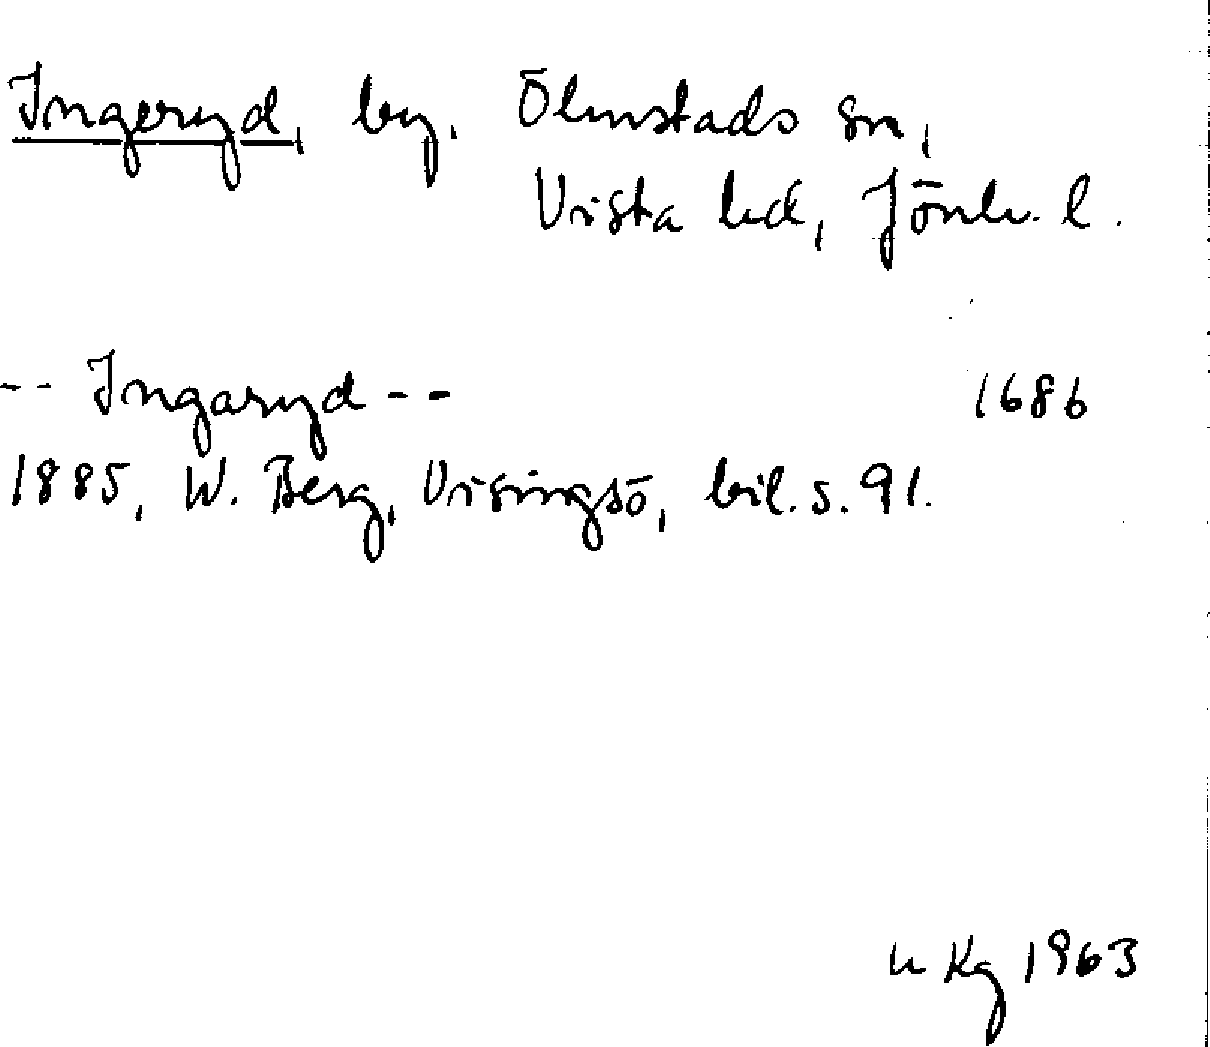 Ingeryd, by. Ölmstads sn,
Vista hd, Jönk. l.
-- Ingaryd -- 1686
1885, W. Berg, Visingsö, bil. s. 91.
Kg 1963